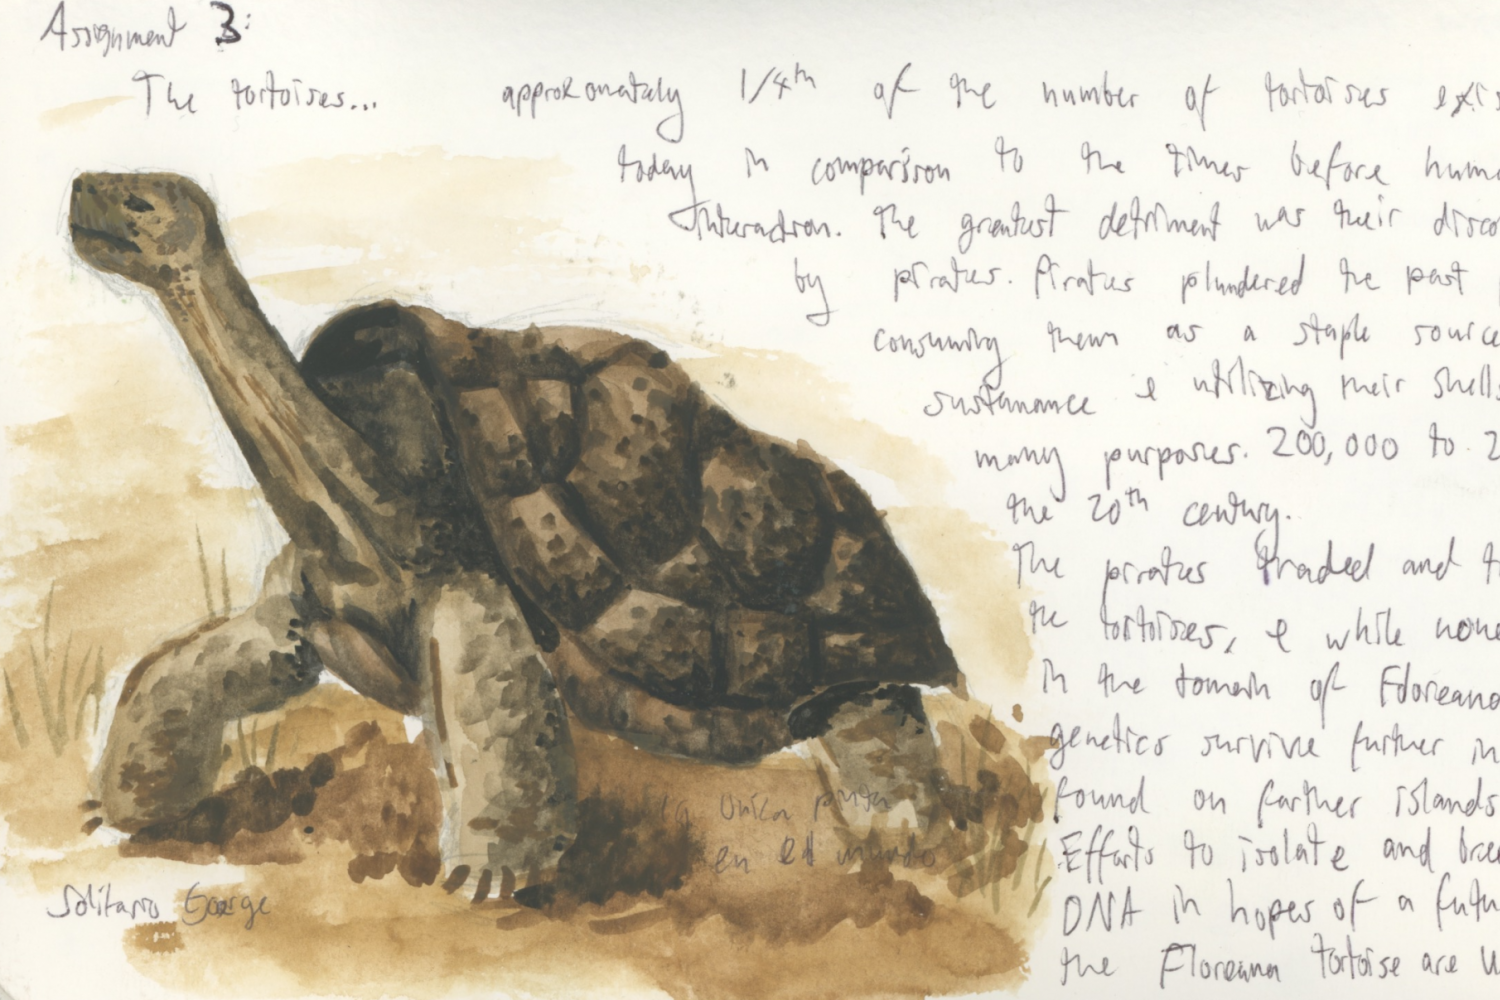 Assignment 3:
The tortoises... approximately 1/4th of the number of tortoises exis
today in comparison to the times before huma
interaction. The greatest detriment was their disco
by pirates. Pirates plundered the past
consuming them as a staple source
sustanance e utilizing their shells
many purposes. 200,000 to 2
the 20th century.
The pirates traded and t
the tortoises, e while none
in the tomain of Floreana
genetics survive further in
found on farther islands.
Efforts to isolate and bree
DNA in hopes of a futu
the Floreana tortoise are u
la Unica pinta
en el mundo
Solitario George